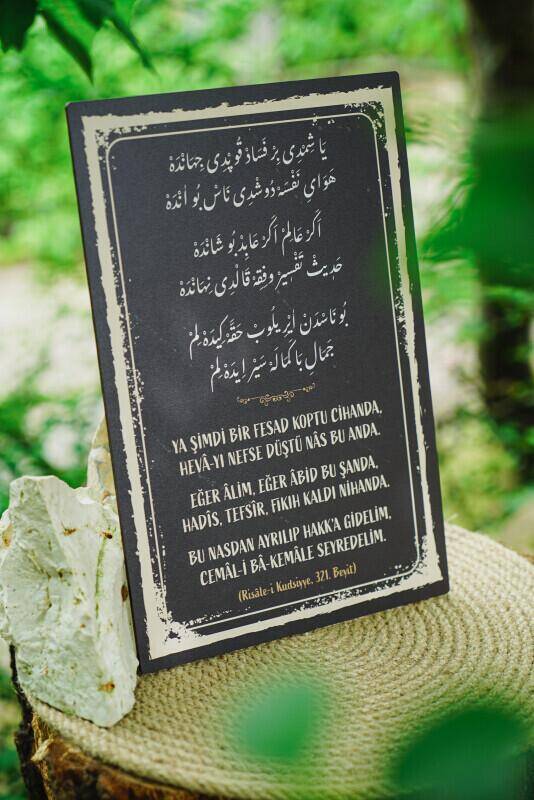 يَا شِمْدِى بِرْ فَسَادْ قُوپْدِى جِهَانْدَهْ
هَوَاىِ نَفْسَهْ دُوشْدِى نَاسْ بُو اٰنْدَهْ
اَكَرْ عَالِمْ اَكَرْ عَابِدْ بُو شَانْدَهْ
حَدِيثْ تَفْسِيرْ وفِقِهْ قَالْدِى نِهَانْدَهْ
بُو نَاسْدَنْ اَيْرِيلُوبْ حَقَّهْ كِيدَهْ لِمْ
جَمَالِ بَا كَمَالَهْ سَيْرْ اِيدَهْ لِمْ
YA ŞİMDİ BİR FESAD KOPTU CİHANDA,
HEVÂ-YI NEFSE DÜŞTÜ NÂS BU ANDA.
EĞER ÂLİM, EĞER ÂBİD BU ŞANDA,
HADÎS, TEFSÎR, FIKIH KALDI NİHANDA.
BU NASDAN AYRILIP HAKK'A GİDELİM,
CEMÂL-İ BÂ-KEMÂLE SEYREDELİM.
(Risâle-i Kudsiyye, 321. Beyit)